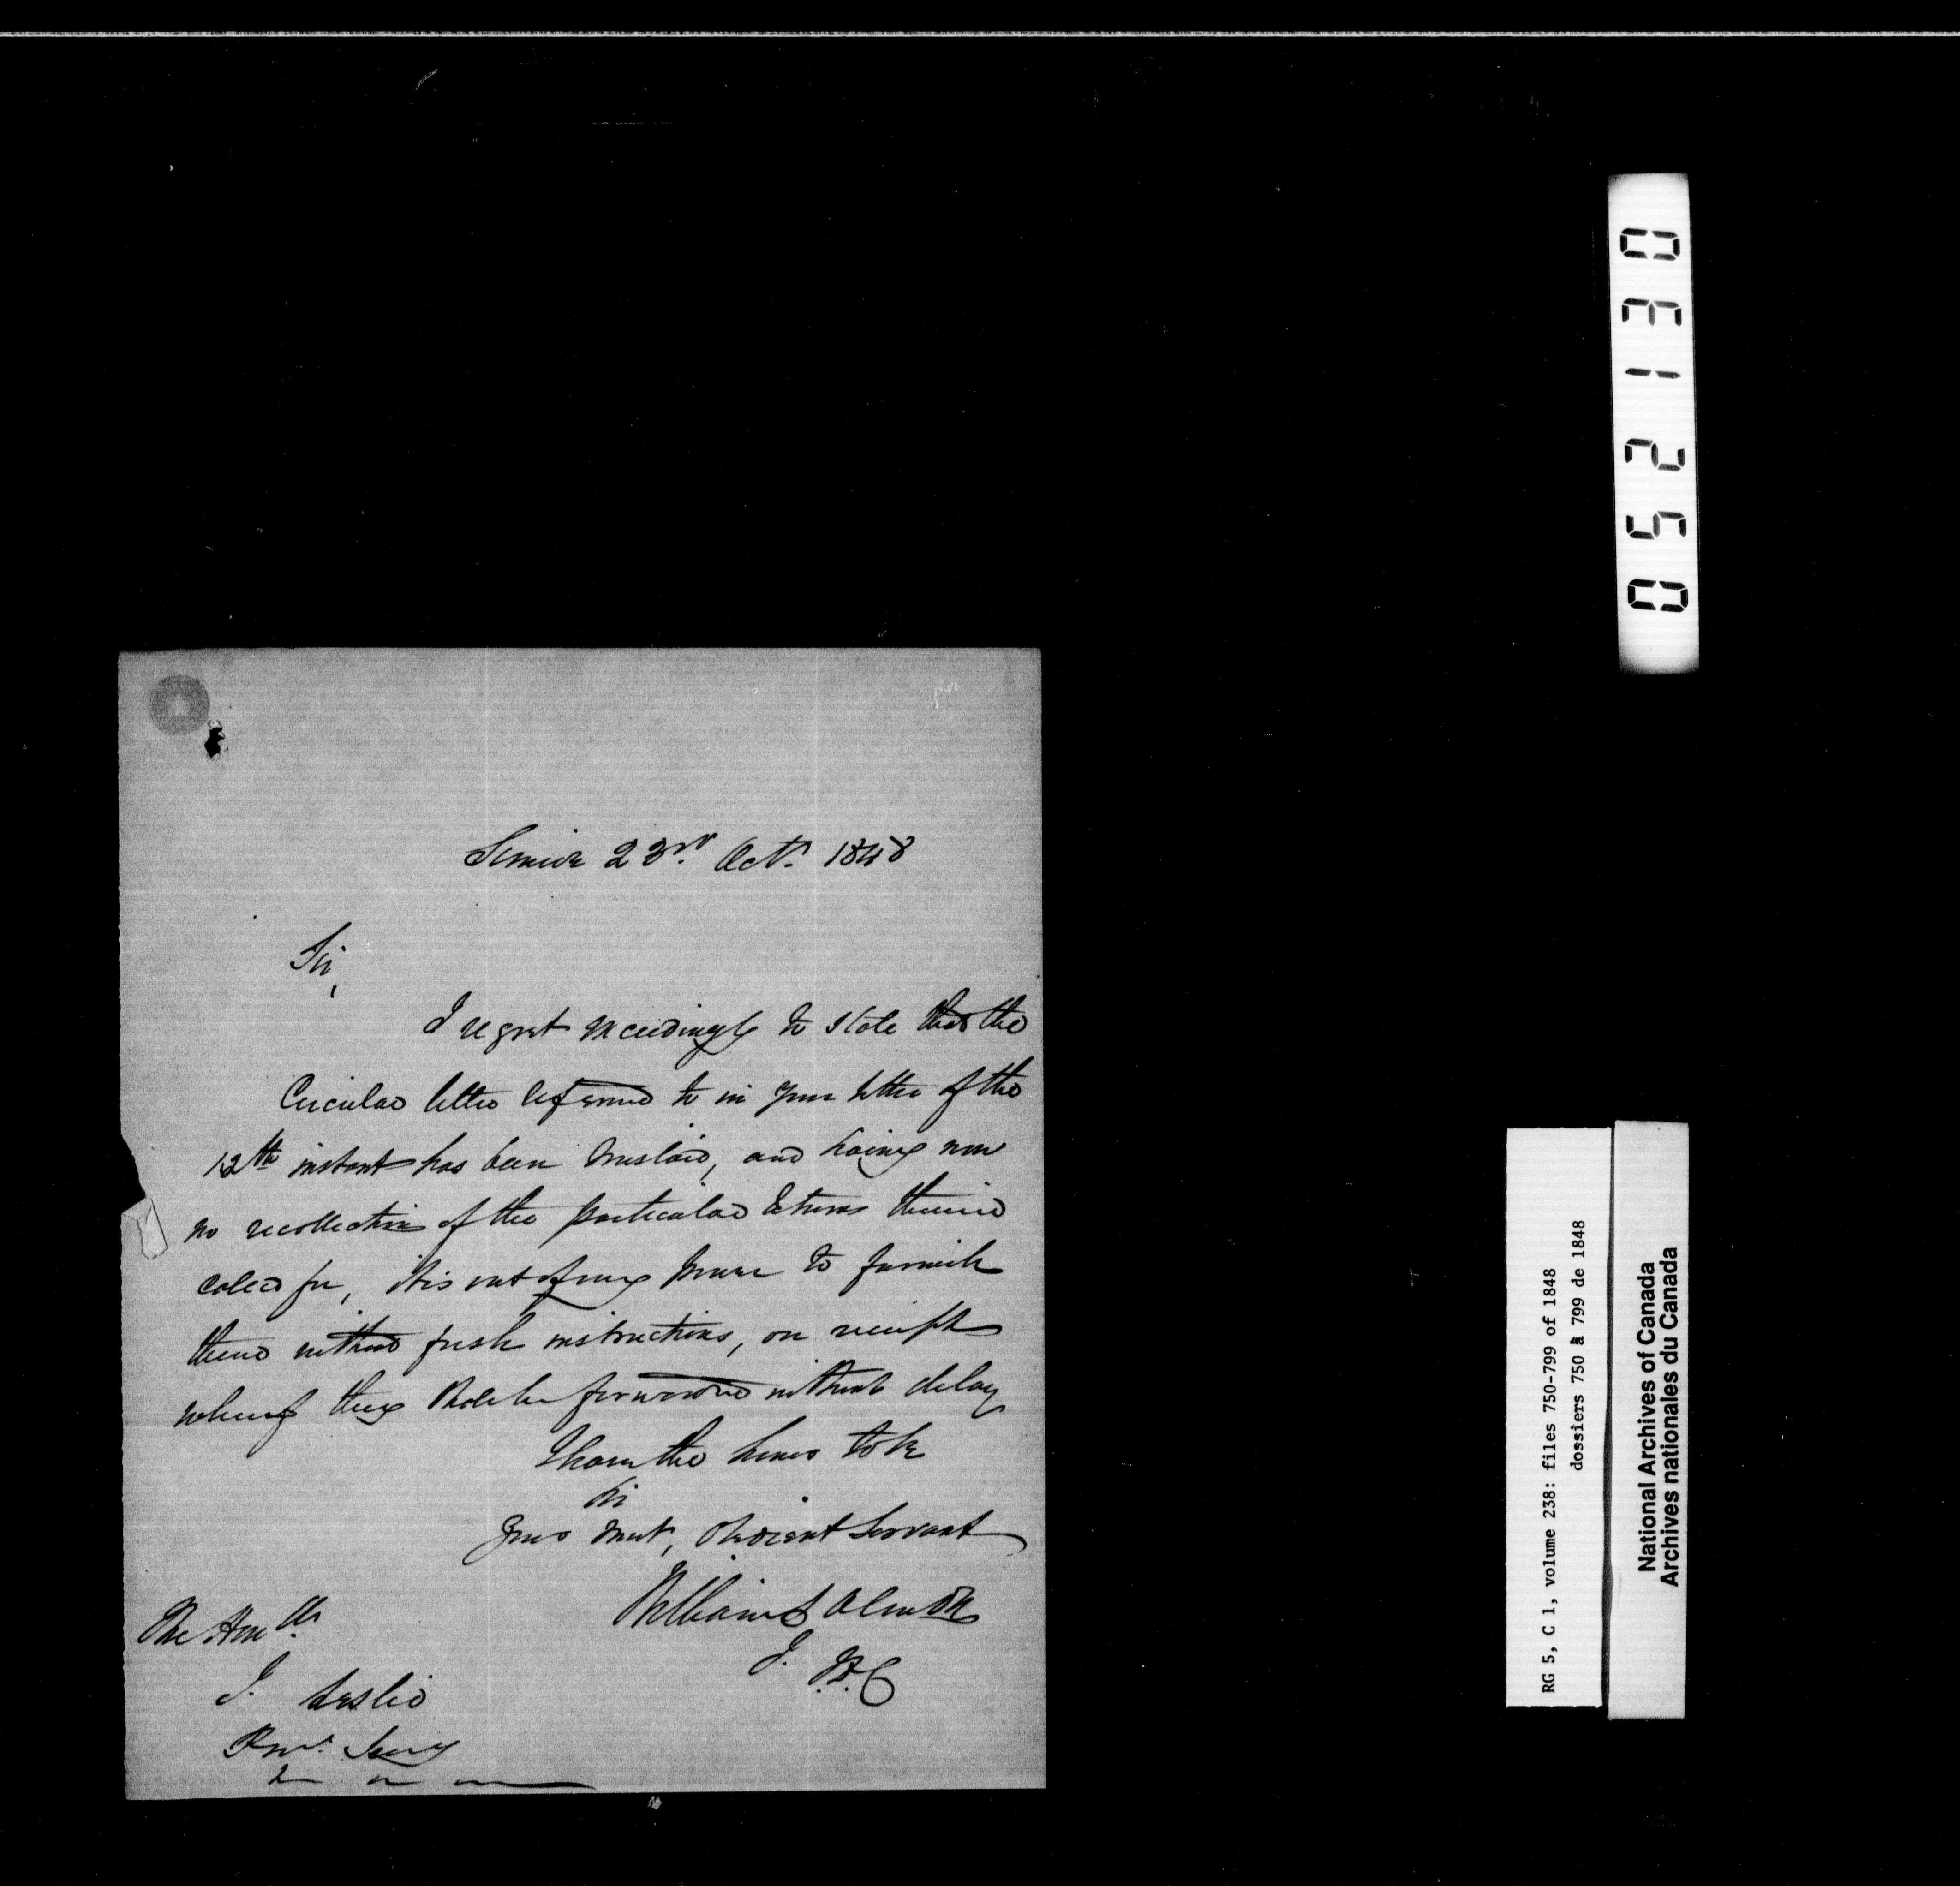 Simcoe 23rd. Octr. 1848
Sir,
I regret exceedingly to state that the
Circular letter referred to in your letter of the
12th instant has been mislaid, and having now
no recollection of the particular returns therein
called for, it is out of my power to furnish
them without fresh instructions, on receipt
whereof they shall be forwarded without delay
I have the honor to be
Sir
Your most, obedient Servant
William Salmon
J. D. C
The Honble.
J. Leslie
Prov. Secy
052130
RG 5, C 1, volume 238: files 750-799 of 1848
dossiers 750 à 799 de 1848
National Archives of Canada
Archives nationales du Canada